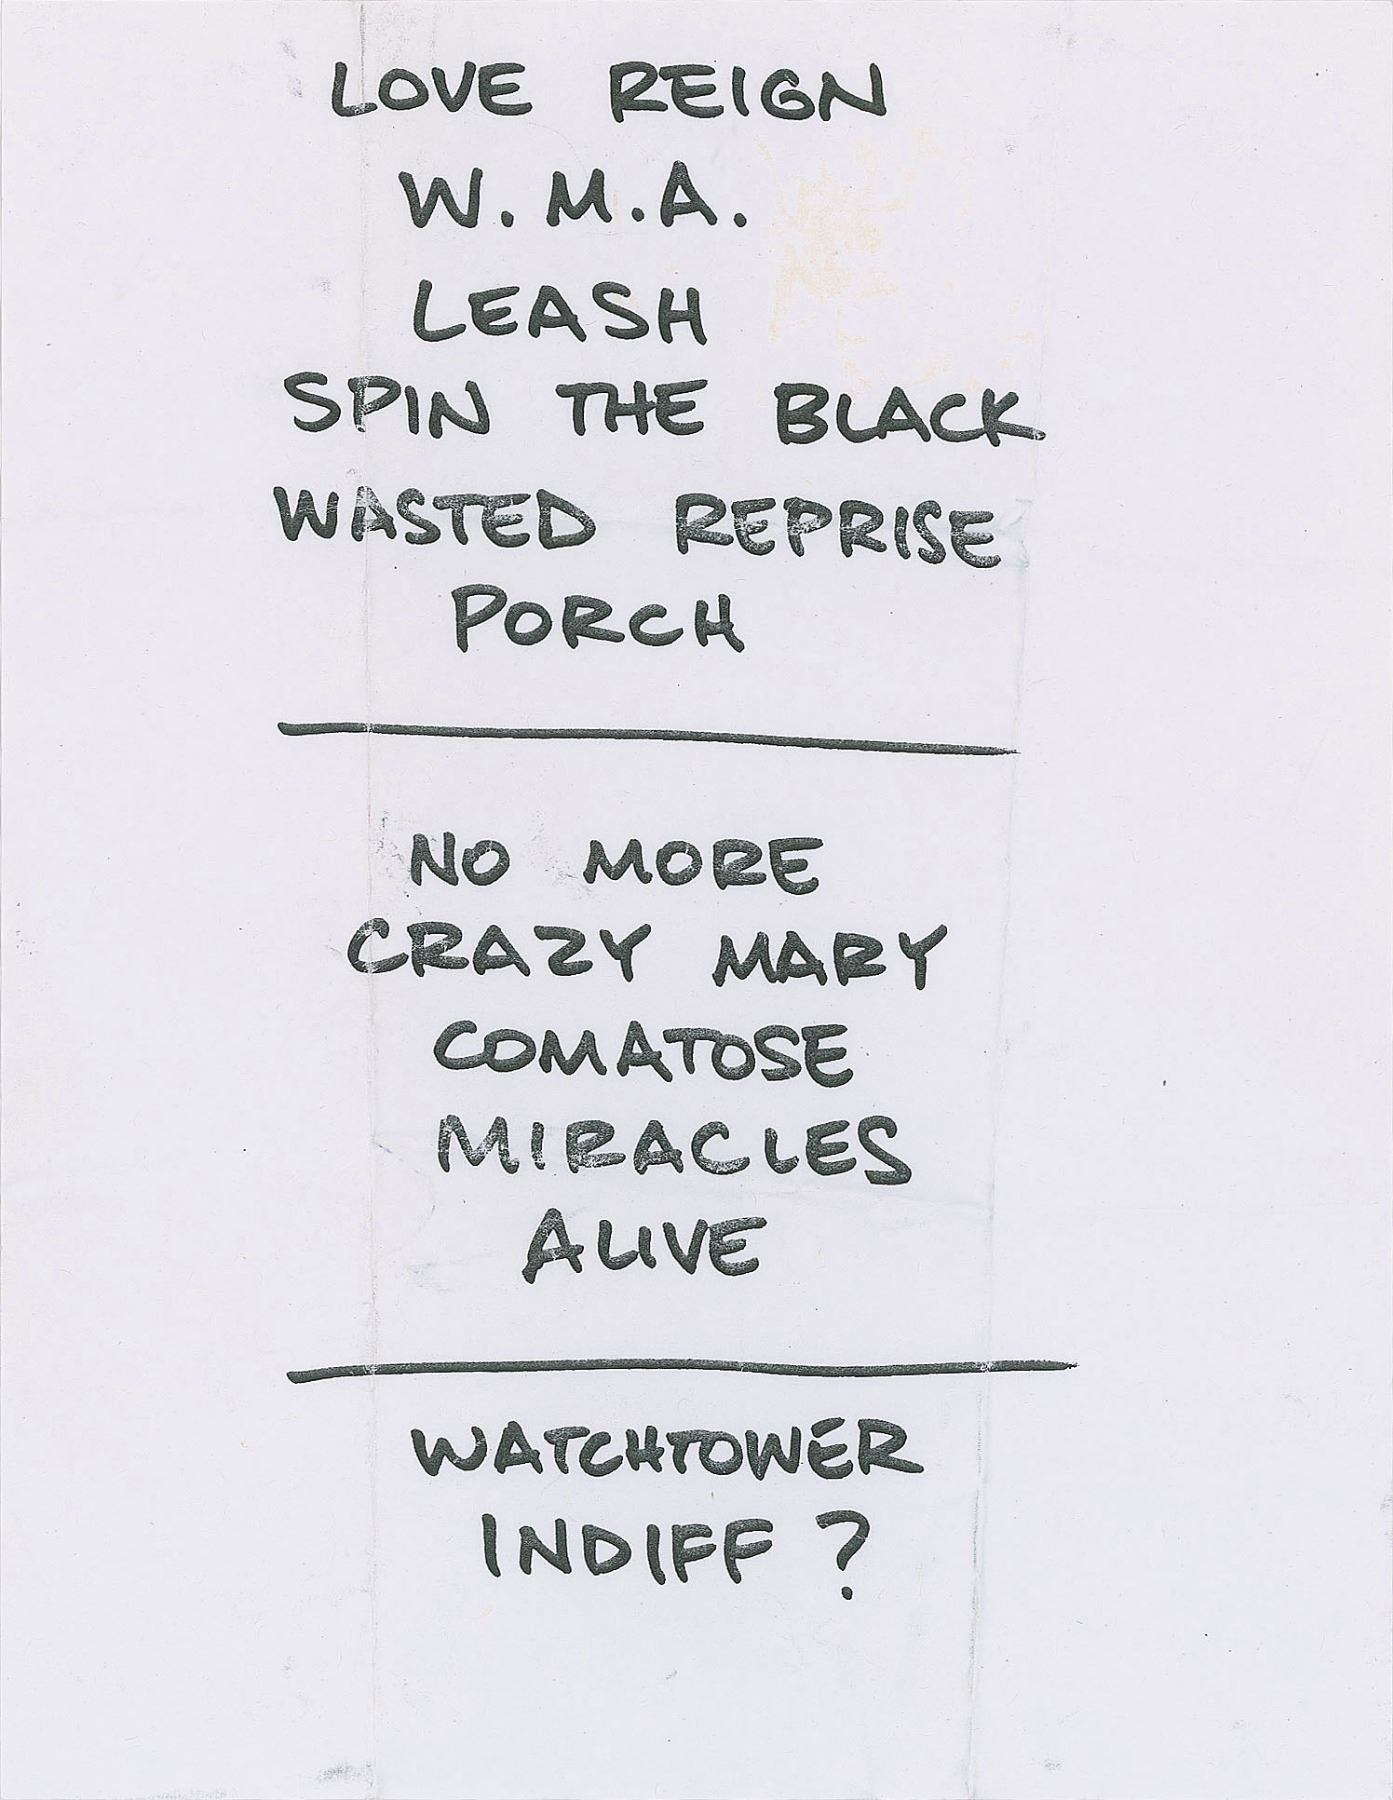 LOVE REIGN
W.M.A.
LEASH
SPIN THE BLACK
WASTED REPRISE
PORCH
NO MORE
CRAZY MARY
COMATOSE
MIRACLES
ALIVE
WATCHTOWER
INDIFF ?